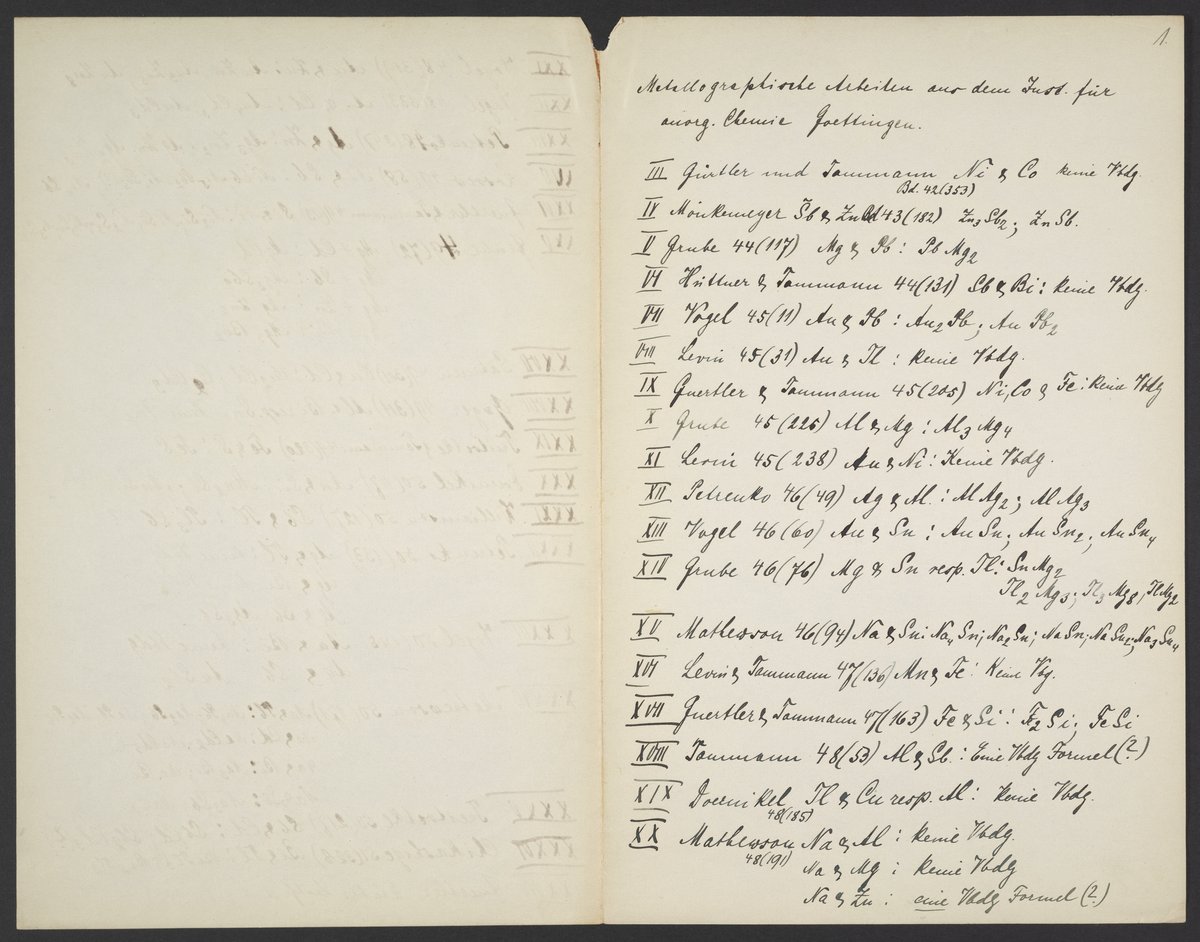 1.
Metallographische Arbeiten aus dem Inst. für
anorg. Chemie Goettingen.
III Gürtler und Tammann Ni & Co keine Vbdg.
Bd. 42(353)
IV Mönkemeyer Sb & Zn 43(182) Zn3Sb2; ZnSb.
V Grube 44(117) Mg & Pb: PbMg2
VI Hüttner & Tammann 44(131) Sb & Bi: keine Vbdg.
VII Vogel 45(11) Au & Pb: Au2Pb; AuPb2
VIII Levin 45(31) Au & Tl: keine Vbdg.
IX Guertler & Tammann 45(205) Ni, Co & Fe: keine Vbdg
X Grube 45(225) Al & Mg: Al3Mg4
XI Levin 45(238) Au & Ni: Keine Vbdg.
XII Petrenko 46(49) Ag & Al.: AlAg2; AlAg3
XIII Vogel 46(60) Au & Sn: AuSn; AuSn2; AuSn4
XIV Grube 46(76) Mg & Sn resp. Tl: SnMg2
Tl2Mg3; Tl3Mg8; TlMg2
XV Mathewson 46(94) Na & Sn: Na4Sn; Na2Sn; NaSn; NaSn2; Na3Sn4
XVI Levin & Tammann 47(136) Mn & Fe: Keine Vbg.
XVII Guertler & Tammann 47(163) Fe & Si: Fe2Si; FeSi
XVIII Tammann 48(53) Al & Sb.: Eine Vbdg Formel(?)
XIX Doernikel Tl & Cu resp. Al: keine Vbdg.
48(185)
XX Mathewson Na & Al: keine Vbdg.
48(191) Na & Mg: keine Vbdg
Na & Zn: eine Vbdg Formel(?)